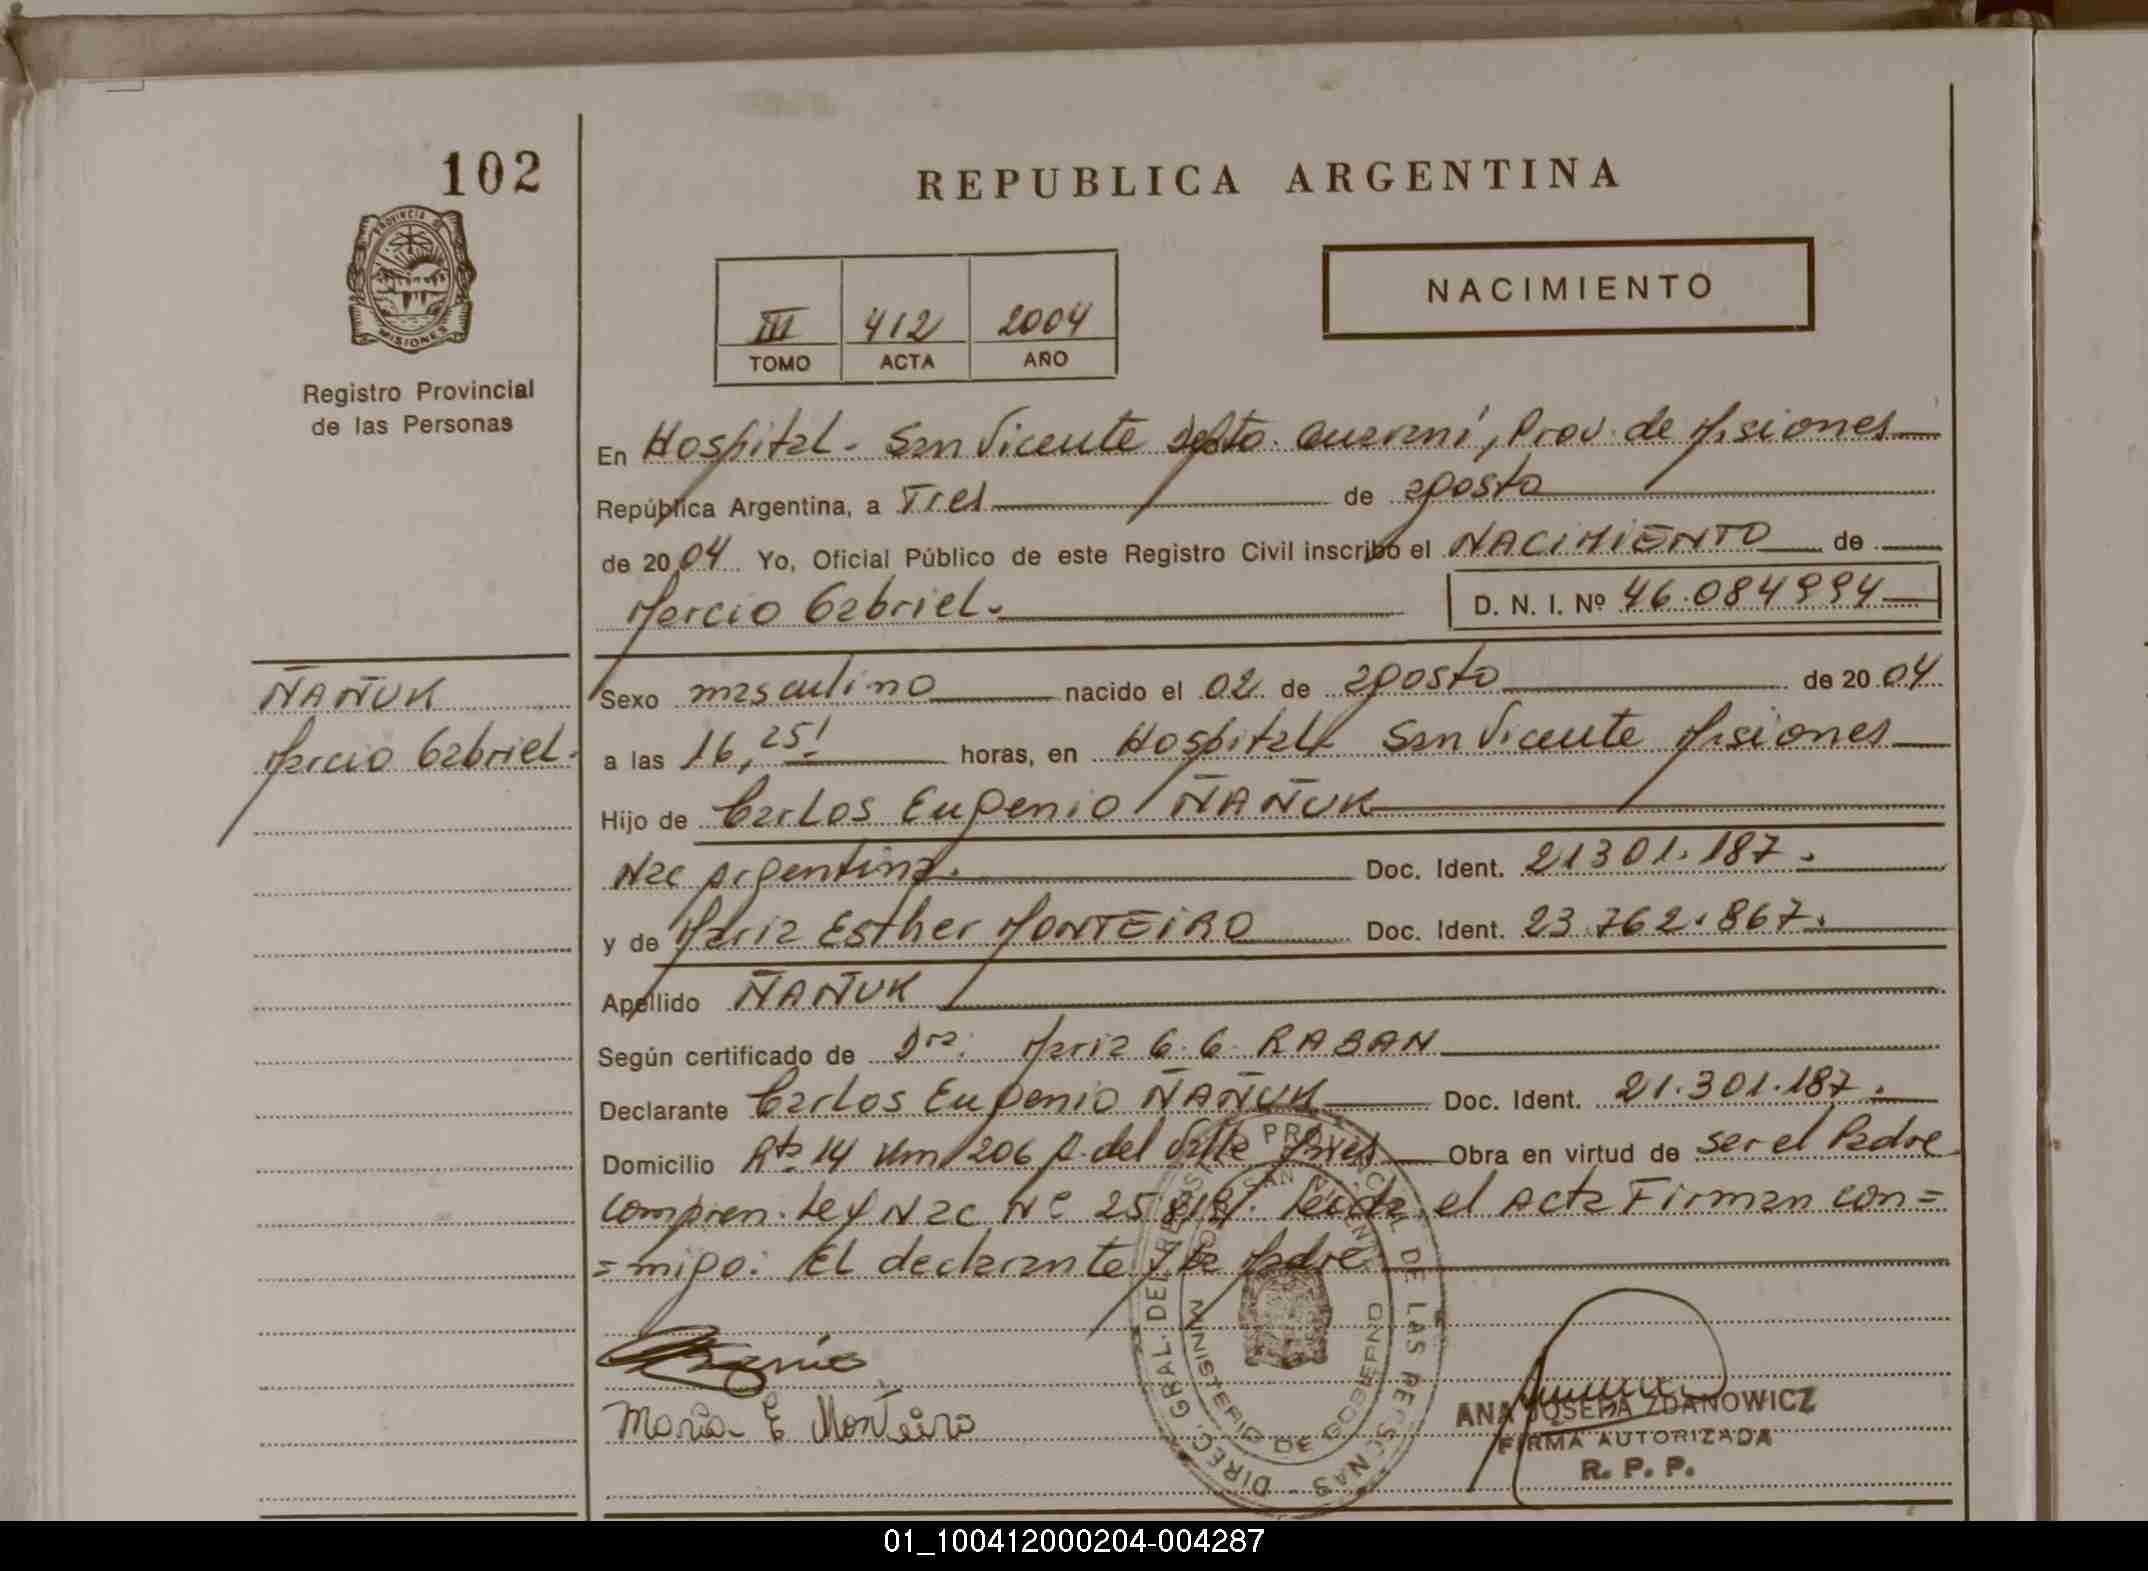 102
REPUBLICA ARGENTINA
PROVINCIA DE
MISIONES
Registro Provincial
de las Personas
NACIMIENTO
III 412 2004
TOMO ACTA AÑO
En Hospital - San Vicente Depto. Guaraní, Prov. de Misiones
República Argentina, a Tres de agosto
de 2004 Yo, Oficial Público de este Registro Civil inscribo el NACIMIENTO de
Marcio Gabriel.
D. N. I. Nº 46.084994
ÑAÑUK
Marcio Gabriel.
Sexo masculino nacido el 02 de agosto de 2004
a las 16,25' horas, en Hospital San Vicente Misiones
Hijo de Carlos Eugenio ÑAÑUK
Nac Argentina. Doc. Ident. 21301.187.
y de Maria Esther MONTEIRO Doc. Ident. 23.762.867.
Apellido ÑAÑUK
Según certificado de Dra. Maria G. G. RABAN
Declarante Carlos Eugenio ÑAÑUK Doc. Ident. 21.301.187.
Domicilio Rta 14 Km 206 A. del Valle Mnes Obra en virtud de ser el Padre
Compren. Ley Nac Nº 25.819. Leída el Acta Firman con=
=migo: El declarante y la Madre
Maria E Monteiro
DIREC. GRAL. DEL REGIS. PROVINCIAL DE LAS PERSONAS
SAN VICENTE
MINISTERIO DE GOBIERNO
ANA JOSEFA ZDANOWICZ
FIRMA AUTORIZADA
R. P. P.
01_100412000204-004287